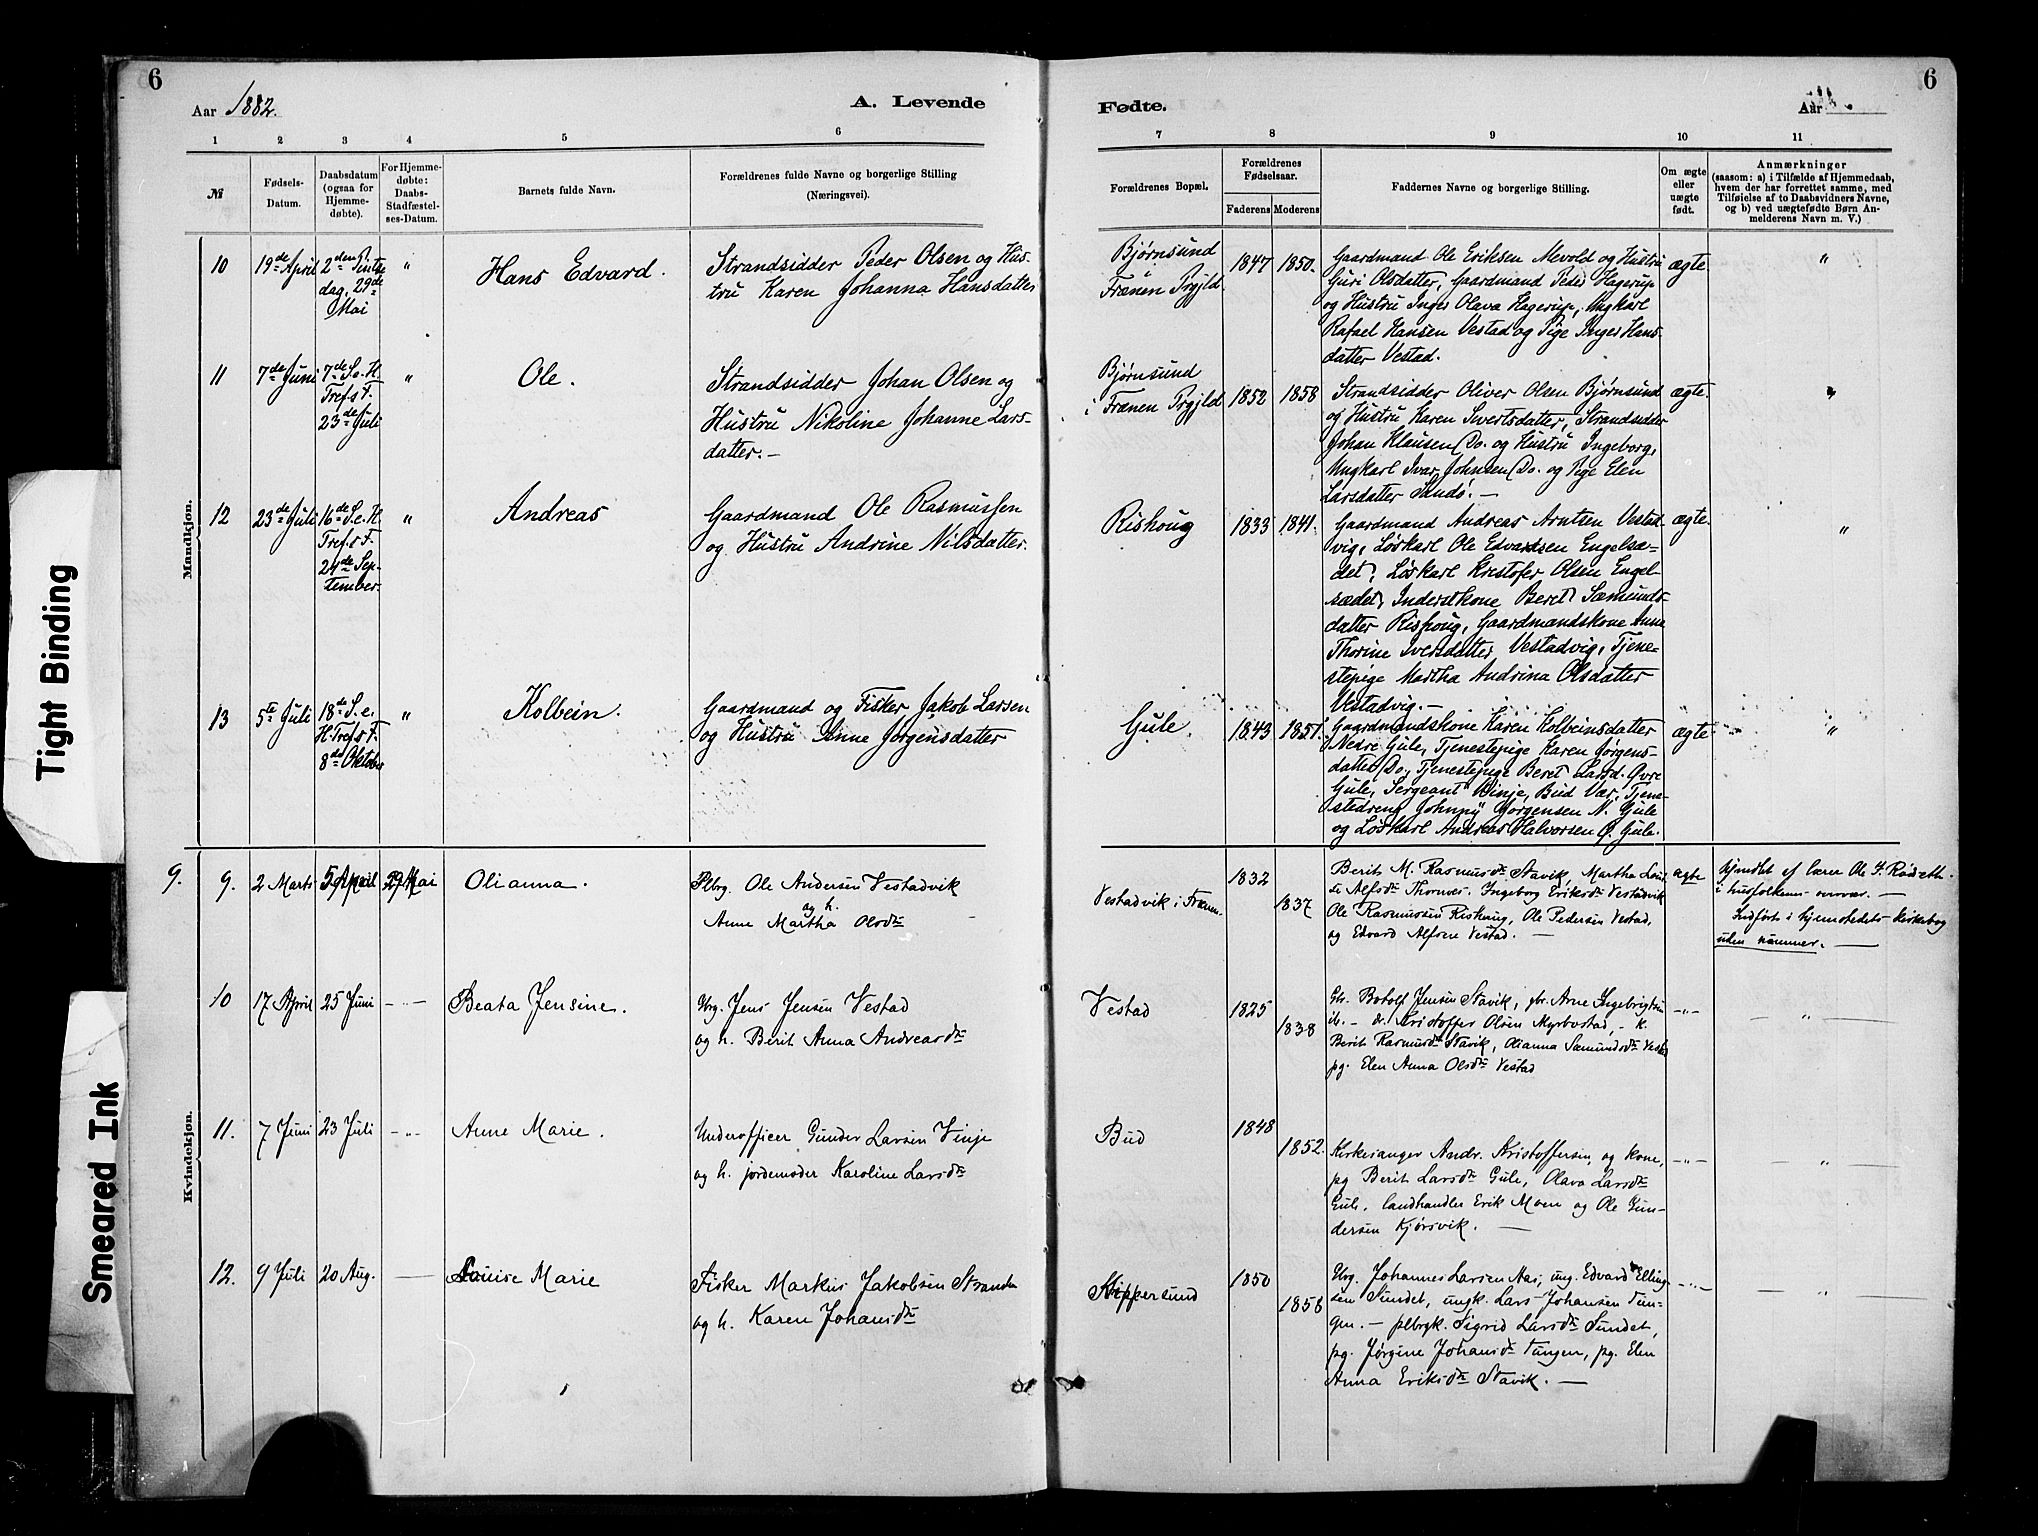 6
Aar 1882.
A. Levende
1 2 3 4 5 6
№
Fødsels-Datum.
Daabsdatum (ogsaa for Hjemmedøbte).
For Hjemmedøbte: Daabs-Stadfæstelses-Datum.
Barnets fulde Navn.
Forældrenes fulde Navne og borgerlige Stilling (Næringsvei).
Fødte.
Aar
6
7 8 9 10 11
Forældrenes Bopæl.
Forældrenes Fødselsaar.
Faderens Moderens
Faddernes Navne og borgerlige Stilling.
Om ægte eller uægte født.
Anmærkninger
(saasom: a) i Tilfælde af Hjemmedaab,
hvem der har forrettet samme, med
Tilføielse af to Daabsvidners Navne,
og b) ved uægtefødte Børn Anmelderens Navn m. V.)
Mandkjøn.
10
19de April
2den Pintse
dag, 29de
Mai
"
Hans Edvard.
Strandsidder Peder Olsen og Hus-
tru Karen Johanna Hansdatter
Bjørnsund
Frænen Prgjld.
1847 1850.
Gaardmand Ole Eriksen Mevold og Hustru
Guri Olsdatter, Gaardmand Peder Hagerup
og Hustru Inger Olava Hagerup, Ungkarl
Rafael Hansen Vestad og Pige Inger Hans-
datter Vestad.
ægte.
"
11
7de Juni
7de S. e. H.
Tref. s F.
23de Juli
"
Ole.
Strandsidder Johan Olsen og
Hustru Nikoline Johanne Lars-
datter.—
Bjørnsund
i Frænen Prgjld
1852 1858
Strandsidder Oliver Olsen Bjørnsund
og Hustru Karen Sivertsdatter, Strandsidder
Johan Klausen Do. og Hustru Ingeborg,
Ungkarl Ivar Johnsen Do. og Pige Elen
Larsdatter Sandø.—
ægte.
"
12
23de Juli
16de S. e. H.
Tref. s F.
24de Sep-
tember.
"
Andreas
Gaardmand Ole Rasmussen
og Hustru Andrine Nilsdatter.
Rishoug
1833 1841.
Gaardmand Andreas Arntsen Vestad-
vig, Løskarl Ole Edvardsen Engelsæ-
det, Løskarl Kristofer Olsen Engel-
sædet, Inderstkone Beret Sæmunds-
datter Rishoug, Gaardmandskone Anne
Thorine Iversdatter Vestadvig, Tjene-
stepige Martha Andrina Olsdatter
Vestadvig.—
ægte.
"
13
5te Juli
18de S. e.
H. Tref. s F.
8de Oktober
"
Kolbein.
Gaardmand og Fisker Jakob Larsen
og Hustru Anne Jørgensdatter
Gule.
1843 1851.
Gaardmandskone Karen Kolbeinsdatter
Nedre Gule, Tjenestepige Karen Jørgens-
datter Do, Tjenestepige Beret Larsd. Øvre
Gule, Sergeant Vinje, Bud Vær, Tjene-
stedreng Johnny Jørgensen N. Gule
og Løskarl Andreas Halvorsen Ø. Gule.
ægte
"
Kvindekjøn.
9.
9.
2 Marts
5 April
29 Mai
Olianna.
Plbrg. Ole Andersen Vestadvik
og h.
Anne Martha Olsdtr
Vestadvik i Frænen.
1832
1837
Berit M. Rasmusdtr Stavik, Martha Lovi-
se Alfsdtr Thornes, Ingeborg Eriksdtr Vestadvik
Ole Rasmussen Rishoug, Ole Pedersen Vestad,
og Edvard Alfsen Vestad. —
ægte
Hjmdbt af lærer Ole F. Rødseth
i husfolkenes overvær. —
Indført i hjemstedets kirkebog
uden nummer. —
10
17 April
25 Juni
— " —
Beata Jensine.
Gbrg. Jens Jensen Vestad
og h. Berit Anna Andreasdtr
Vestad
1825
1838
Gbr. Botolf Jensen Stavik, gbr. Arne Ingebrigtsen
ib. — dr. Kristoffer Olsen Myrbostad, — k.
Berit Rasmusdtr Stavik, Olianna Sæmundsdtr Vestad
pg. Elen Anna Olsdtr Vestad
— " —
— " —
11.
7 Juni
23 Juli
— " —
Anne Marie.
Underofficer Gunder Larsen Vinje
og h. jordemoder Karoline Larsdtr
Bud
1848
1852.
Kirkesanger Andr. Kristoffersen og kone,
pg Berit Larsdtr Gule, Olava Larsdtr
Gule, landhandler Erik Moen og Ole Gun-
dersen Kjørsvik. —
— " —
— " —
12.
9 Juli
20 Aug.
—
Louise Marie
Fisker Markus Jakobsen Stranden
og h. Karen Johansdtr
Skippersund
1850
1858
Gbrg. Johannes Larsen Aas, ung. Edvard Elling-
sen Sundet, ungk. Lars Johansen Tun-
gen. — plbrgk. Sigrid Larsdtr Sundet,
pg. Jørgine Johansdtr Tungen, pg. Elen
Anna Eriksdtr Stavik. —
— " —
— " —
Tight Binding
Smeared Ink